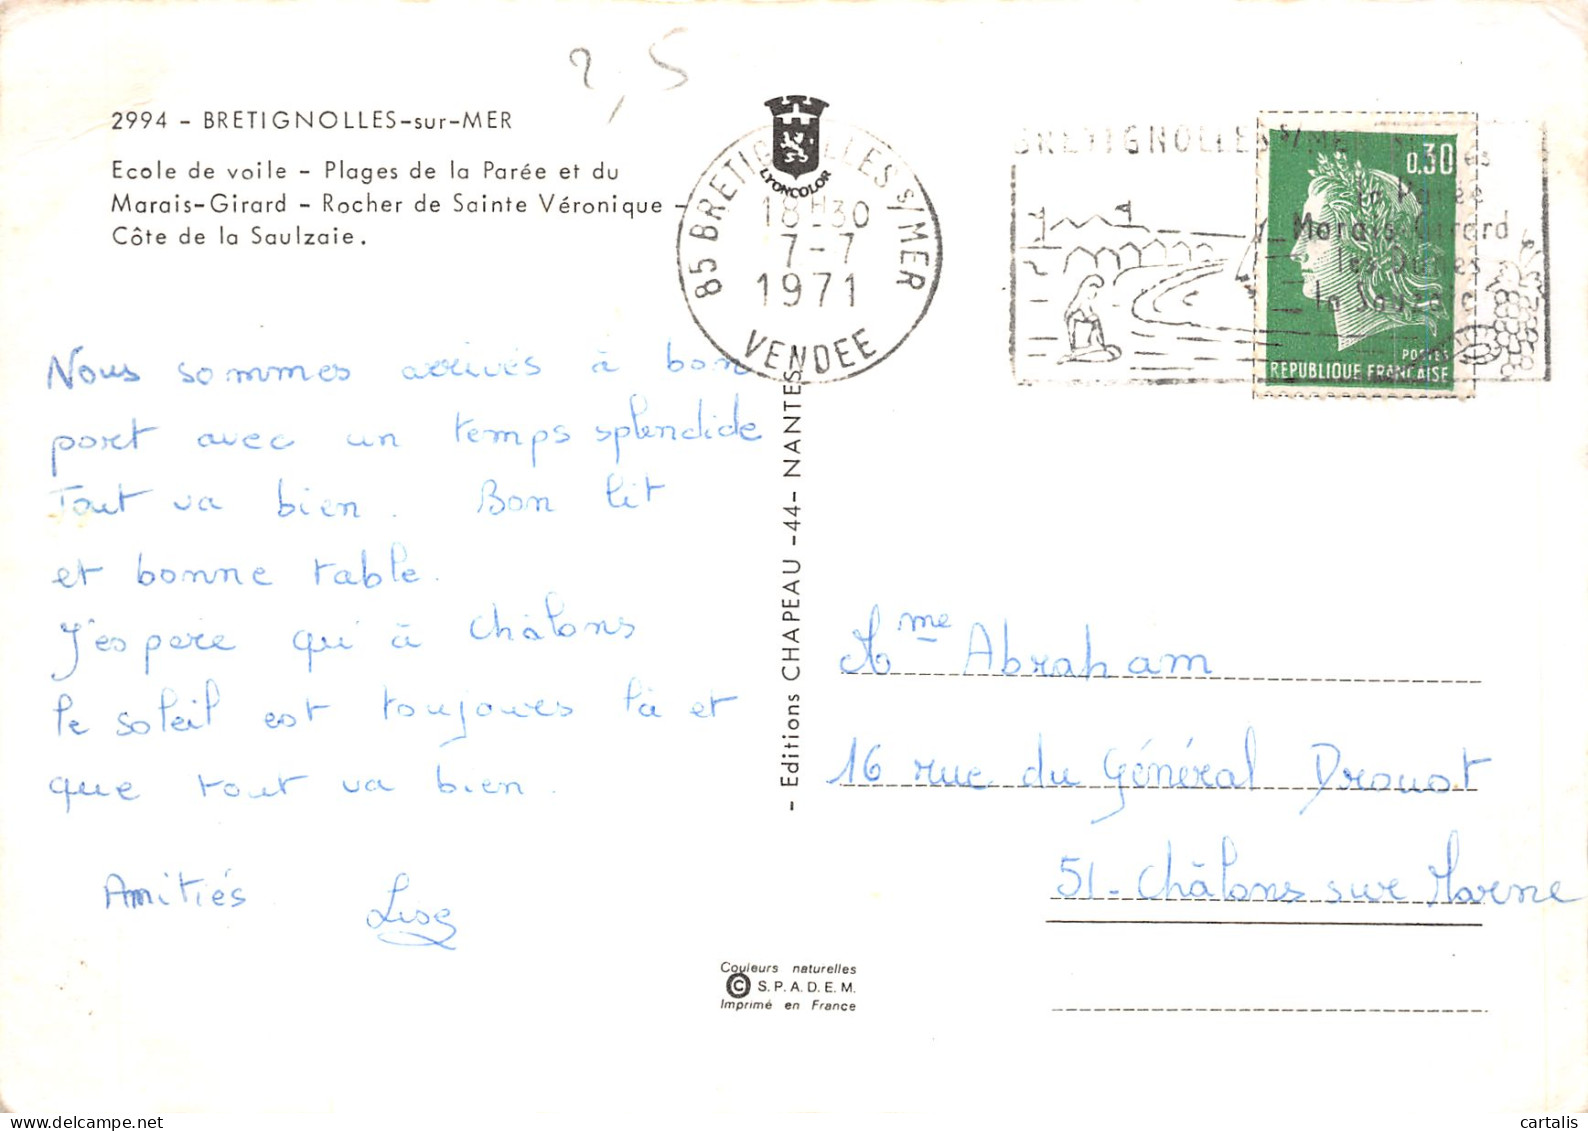 2,5
2994 - BRETIGNOLLES-sur-MER
Ecole de voile - Plages de la Parée et du
Marais-Girard - Rocher de Sainte Véronique -
Côte de la Saulzaie.
LYONCOLOR
85 BRETIGNOLLES S/MER
18H30
7-7
1971
VENDEE
BRETIGNOLLES S/MER
la Parée
Marais Girard
les Dunes
0,30
POSTES
REPUBLIQUE FRANÇAISE
Nous sommes arrivés à bon
port avec un temps splendide
Tout va bien. Bon lit
et bonne table.
J'espère qu'à Châlons
le soleil est toujours là et
que tout va bien.
Amitiés
Lise
- Editions CHAPEAU -44- NANTES
Mme Abraham
16 rue du Général Drouot
51- Châlons sur Marne
Couleurs naturelles
© S.P.A.D.E.M.
Imprimé en France
cartalis
www.delcampe.net